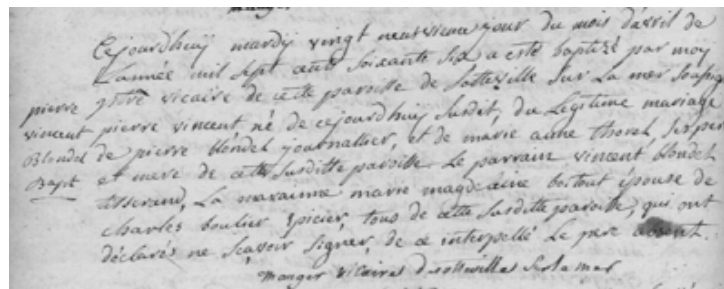 manger
Cejourdhuy mardy vingt neufvieme jour du mois davril de
Lannée mil sept cents soixante six a esté baptizé par moy
ptre vicaire de cette paroisse de Sotteville Sur La mer Soussig
pierre vincent, né de cejourdhuy Susdit, du Legitime mariage
de pierre blondel journallier, et de marie anne thorel, Ses pere
et mere de cette Surditte paroisse. Le parrain vincent blondel
tisserand, La maraine marie magdelaine boitout épouse de
charles boulier Epicier, tous de cette Surditte paroisse, qui ont
déclarés ne Sçavoir Signer, de ce interpellé Le pere absent.
manger vicaire de sotteville Sur la mer
pierre
vincent
Blondel
Bapt